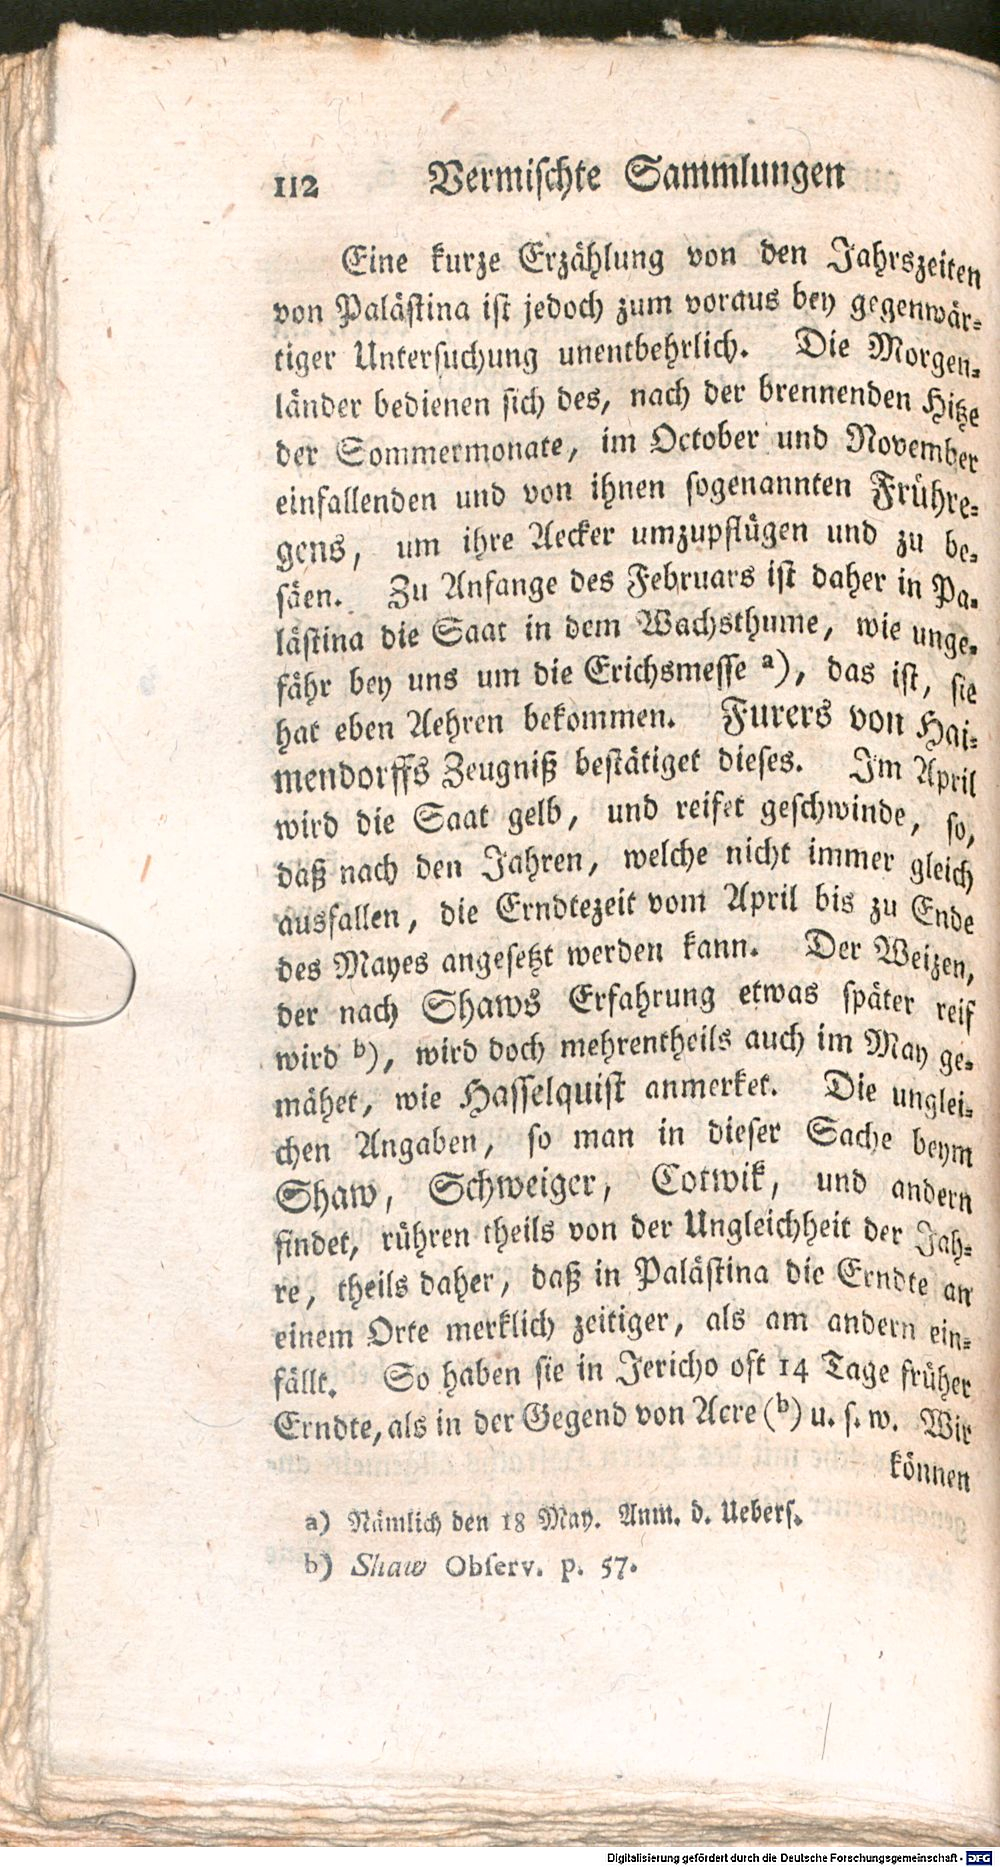 112 Vermischte Sammlungen
Eine kurze Erzählung von den Jahrszeiten
von Palästina ist jedoch zum voraus bey gegenwär-
tiger Untersuchung unentbehrlich. Die Morgen-
länder bedienen sich des, nach der brennenden Hitze
der Sommermonate, im October und November
einfallenden und von ihnen sogenannten Frühre-
gens, um ihre Aecker umzupflügen und zu be-
säen. Zu Anfange des Februars ist daher in Pa-
lästina die Saat in dem Wachsthume, wie unge-
fähr bey uns um die Erichsmesse a), das ist, sie
hat eben Aehren bekommen. Furers von Hai-
mendorffs Zeugniß bestätiget dieses. Im April
wird die Saat gelb, und reifet geschwinde, so,
daß nach den Jahren, welche nicht immer gleich
ausfallen, die Erndtezeit vom April bis zu Ende
des Mayes angesetzt werden kann. Der Weizen,
der nach Shaws Erfahrung etwas später reif
wird b), wird doch mehrentheils auch im May ge-
mähet, wie Hasselquist anmerket. Die unglei-
chen Angaben, so man in dieser Sache beym
Shaw, Schweiger, Cotwik, und andern
findet, rühren theils von der Ungleichheit der Jah-
re, theils daher, daß in Palästina die Erndte an
einem Orte merklich zeitiger, als am andern ein-
fällt. So haben sie in Jericho oft 14 Tage früher
Erndte, als in der Gegend von Acre (b) u. s. w. Wir
können
a) Nämlich den 18 May. Anm. d. Uebers.
b) Shaw Observ. p. 57.
Digitalisierung gefördert durch die Deutsche Forschungsgemeinschaft - DFG